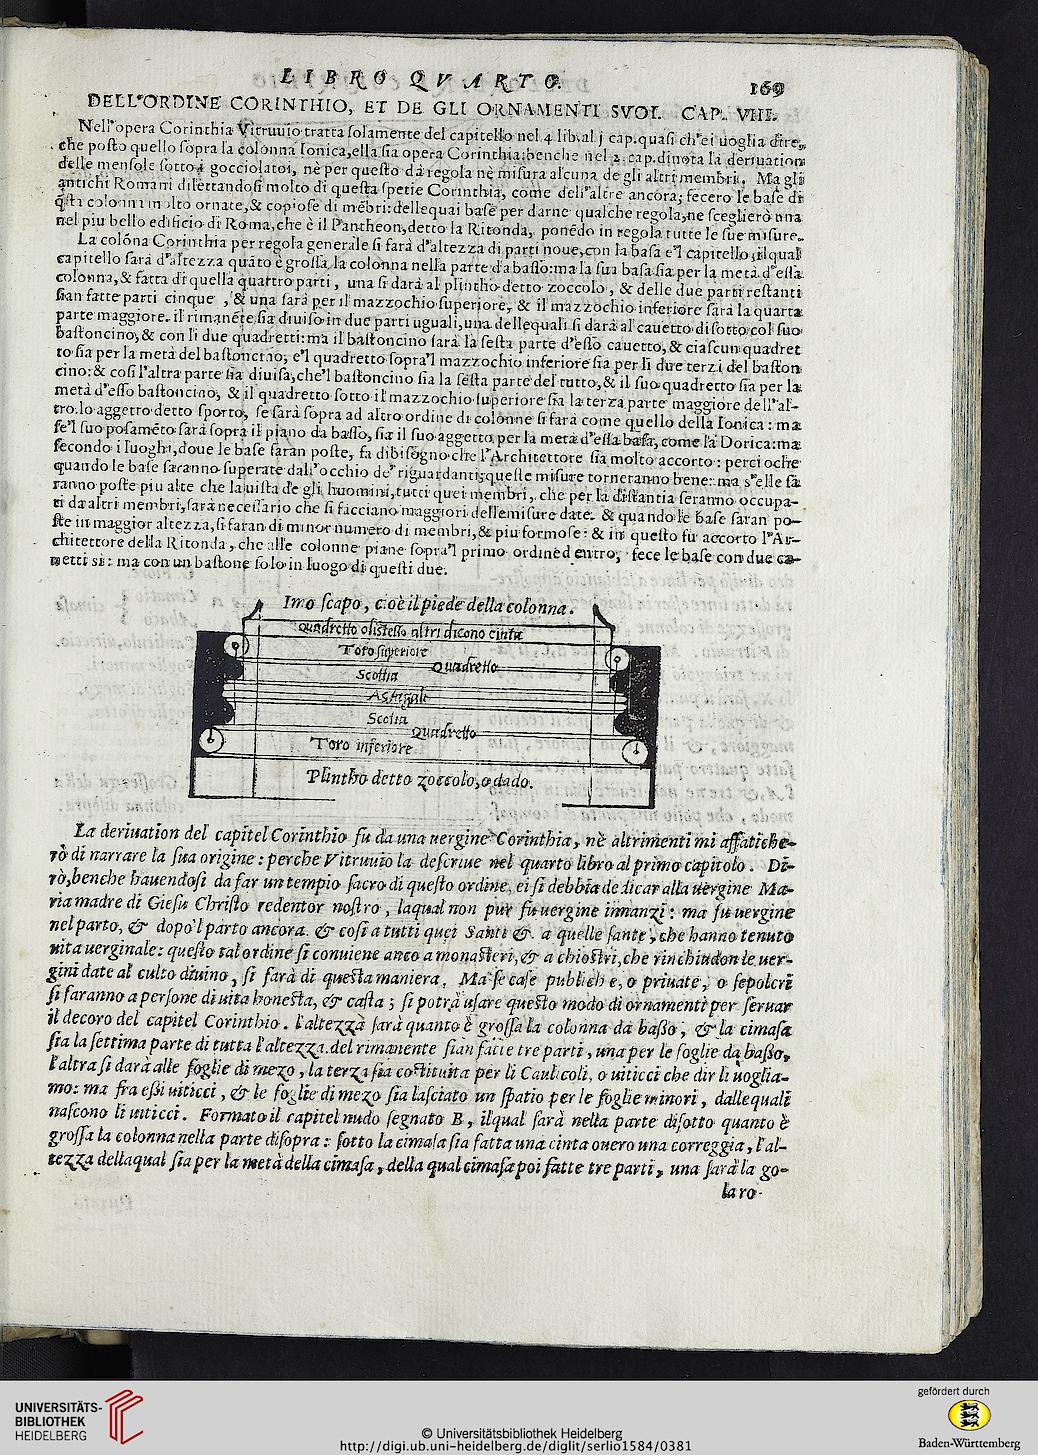 LIBRO QVARTO.
169
DELL'ORDINE CORINTHIO, ET DE GLI ORNAMENTI SVOI. CAP. VIII.
Nell'opera Corinthia Vitruuio tratta solamente del capitello nel 4 lib. al j cap. quasi ch'ei uoglia dire,
che posto quello sopra la colonna Ionica, ella sia opera Corinthia: benche nel 2. cap. dinota la deriuation
delle mensole sotto i gocciolatoi, nè per questo dà regola nè misura alcuna de gli altri membri. Ma gli
antichi Romani dilettandosi molto di questa spetie Corinthia, come dell'altre ancora; fecero le base di
q̃sti colonni molto ornate, & copiose di mẽbri: dellequai base per darne qualche regola, ne sceglierò una
nel piu bello edificio di Roma, che è il Pantheon, detto la Ritonda, ponẽdo in regola tutte le sue misure.
La colõna Corinthia per regola generale si farà d'altezza di parti noue, con la basa e'l capitello; ilqual
capitello sarà d'altezza quãto è grossa la colonna nella parte da basso: ma la sua basa sia per la metà d'essa
colonna, & fatta di quella quattro parti, una si darà al plintho detto zoccolo, & delle due parti restanti
sian fatte parti cinque, & una sarà per il mazzochio superiore, & il mazzochio inferiore sarà la quarta
parte maggiore. il rimanẽte sia diuiso in due parti uguali, una dellequali si darà al cauetto di sotto col suo
bastoncino, & con li due quadretti: ma il bastoncino sarà la sesta parte d'esso cauetto, & ciascun quadret
to sia per la metà del bastoncino; e'l quadretto sopra'l mazzochio inferiore sia per li due terzi del baston
cino: & cosi l'altra parte sia diuisa, che'l bastoncino sia la sesta parte del tutto, & il suo quadretto sia per la
metà d'esso bastoncino, & il quadretto sotto il mazzochio superiore sia la terza parte maggiore dell'al-
tro. lo aggetto detto sporto, se sarà sopra ad altro ordine di colonne si farà come quello della Ionica: ma
se'l suo posamẽto sarà sopra il piano da basso, sia il suo aggetto per la metà d'essa basa, come la Dorica: ma
secondo i luoghi, doue le base saran poste, fa dibisogno che l'Architettore sia molto accorto: percioche
quando le base saranno superate dall'occhio de' riguardanti; queste misure torneranno bene: ma s'elle sa
ranno poste piu alte che la uista de gli huomini, tutti quei membri, che per la distantia seranno occupa-
ti da altri membri, sarà necessario che si facciano maggiori delle misure date. & quando le base saran po-
ste in maggior altezza, si faran di minor numero di membri, & piu formose: & in questo fu accorto l'Ar-
chitettore della Ritonda, che alle colonne piane sopra'l primo ordine d entro, fece le base con due ca-
uetti sì: ma con un bastone solo in luogo di questi due.
Imo scapo, cioè il piede della colonna.
Quadretto o listello altri dicono cinta
Toro superiore
Quadretto
Scottia
Astragali
Scotia
Quadretto
Toro inferiore
Plintho detto zoccolo, o dado.
La deriuation del capitel Corinthio fu da una uergine Corinthia, nè altrimenti mi affatiche-
rò di narrare la sua origine: perche Vitruuio la descriue nel quarto libro al primo capitolo. Di-
rò, benche hauendosi da far un tempio sacro di questo ordine, ei si debbia dedicar alla uergine Ma-
ria madre di Giesu Christo redentor nostro, laqual non pur fu uergine innanzi: ma fu uergine
nel parto, & dopo'l parto ancora. & cosi a tutti quei Santi & a quelle sante, che hanno tenuto
uita uerginale: questo tal ordine si conuiene anco a monasteri, & a chiostri, che rinchiudon le uer-
gini date al culto diuino, si farà di questa maniera. Ma se case publiche, o priuate, o sepolcri
si faranno a persone di uita honesta, & casta; si potrà usare questo modo di ornamenti per seruar
il decoro del capitel Corinthio. l'altezza sarà quanto è grossa la colonna da basso, & la cimasa
sia la settima parte di tutta l'altezza. del rimanente sian fatte tre parti, una per le foglie da basso,
l'altra si darà alle foglie di mezo, la terza sia costituita per li Caulicoli, o uiticci che dir li uoglia-
mo: ma fra essi uiticci, & le foglie di mezo sia lasciato un spatio per le foglie minori, dallequali
nascono li uiticci. Formato il capitel nudo segnato B, ilqual sarà nella parte disotto quanto è
grossa la colonna nella parte disopra: sotto la cimasa sia fatta una cinta ouero una correggia, l'al-
tezza dellaqual sia per la metà della cimasa, della qual cimasa poi fatte tre parti, una sarà la go-
laro
UNIVERSITÄTS-
BIBLIOTHEK
HEIDELBERG
© Universitätsbibliothek Heidelberg
http://digi.ub.uni-heidelberg.de/diglit/serlio1584/0381
gefördert durch
Baden-Württemberg